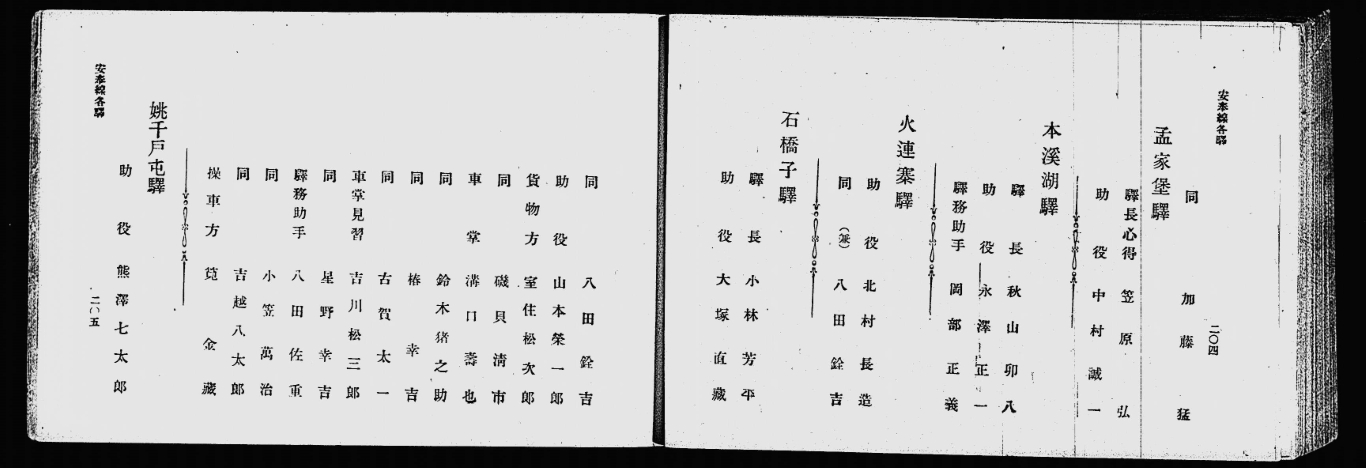 安奉線各驛
同 加藤猛
孟家堡驛
驛長心得 笠原弘
助役 中村誠一
本溪湖驛
驛長 秋山卯八
助役 永澤正一
驛務助手 岡部正義
火連寨驛
助役 北村長造
同(兼) 八田銓吉
石橋子驛
驛長 小林芳平
助役 大塚直藏
二〇四
同 八田銓吉
助役 山本榮一郎
貨物方 室住松次郎
同 磯貝淸市
車掌 溝口壽也
同 鈴木猪之助
同 椿幸吉
同 古賀太一
車掌見習 吉川松三郎
同 星野幸吉
驛務助手 八田佐重
同 小笠萬治
同 吉越八太郎
操車方 筧金藏
姚千戶屯驛
助役 熊澤七太郎
安奉線各驛
二〇五